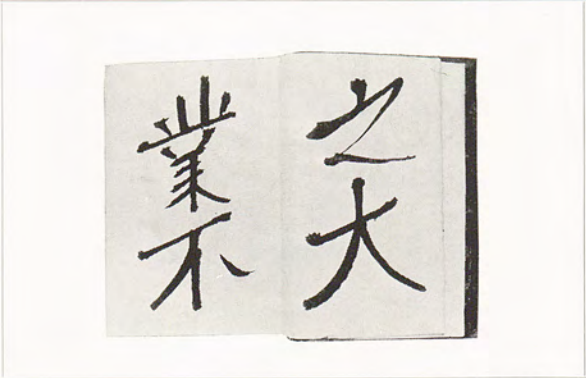 之大
業不